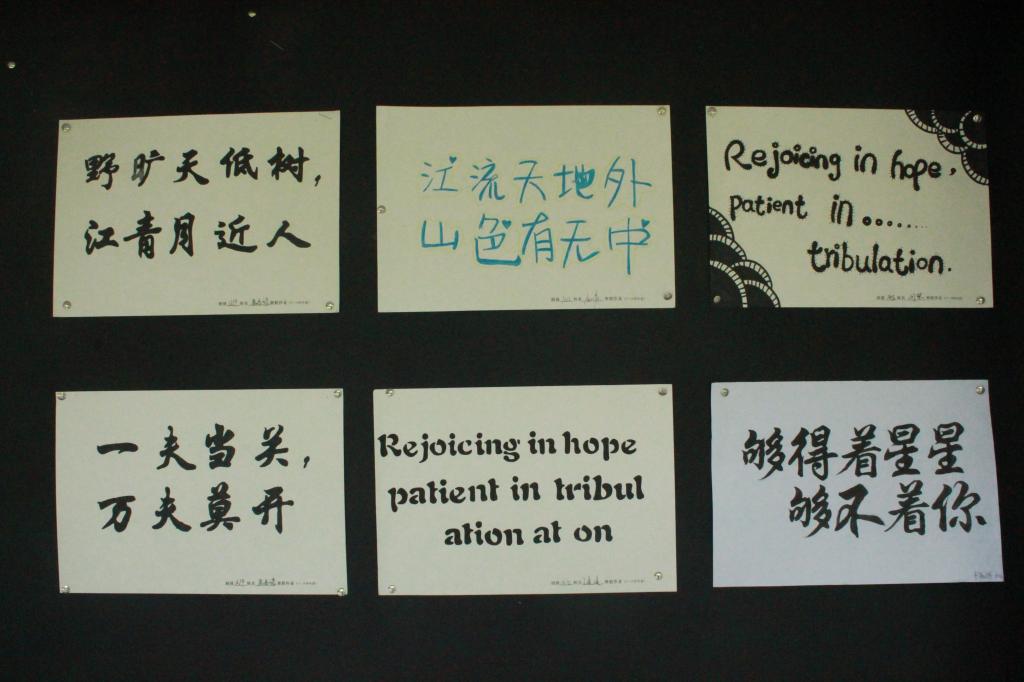 野旷天低树,
江青月近人
江流天地外
山色有无中
Rejoicing in hope,
patient in........
tribulation.
一夫当关,
万夫莫开
Rejoicing in hope
patient in tribul
ation at on
够得着星星
够不着你